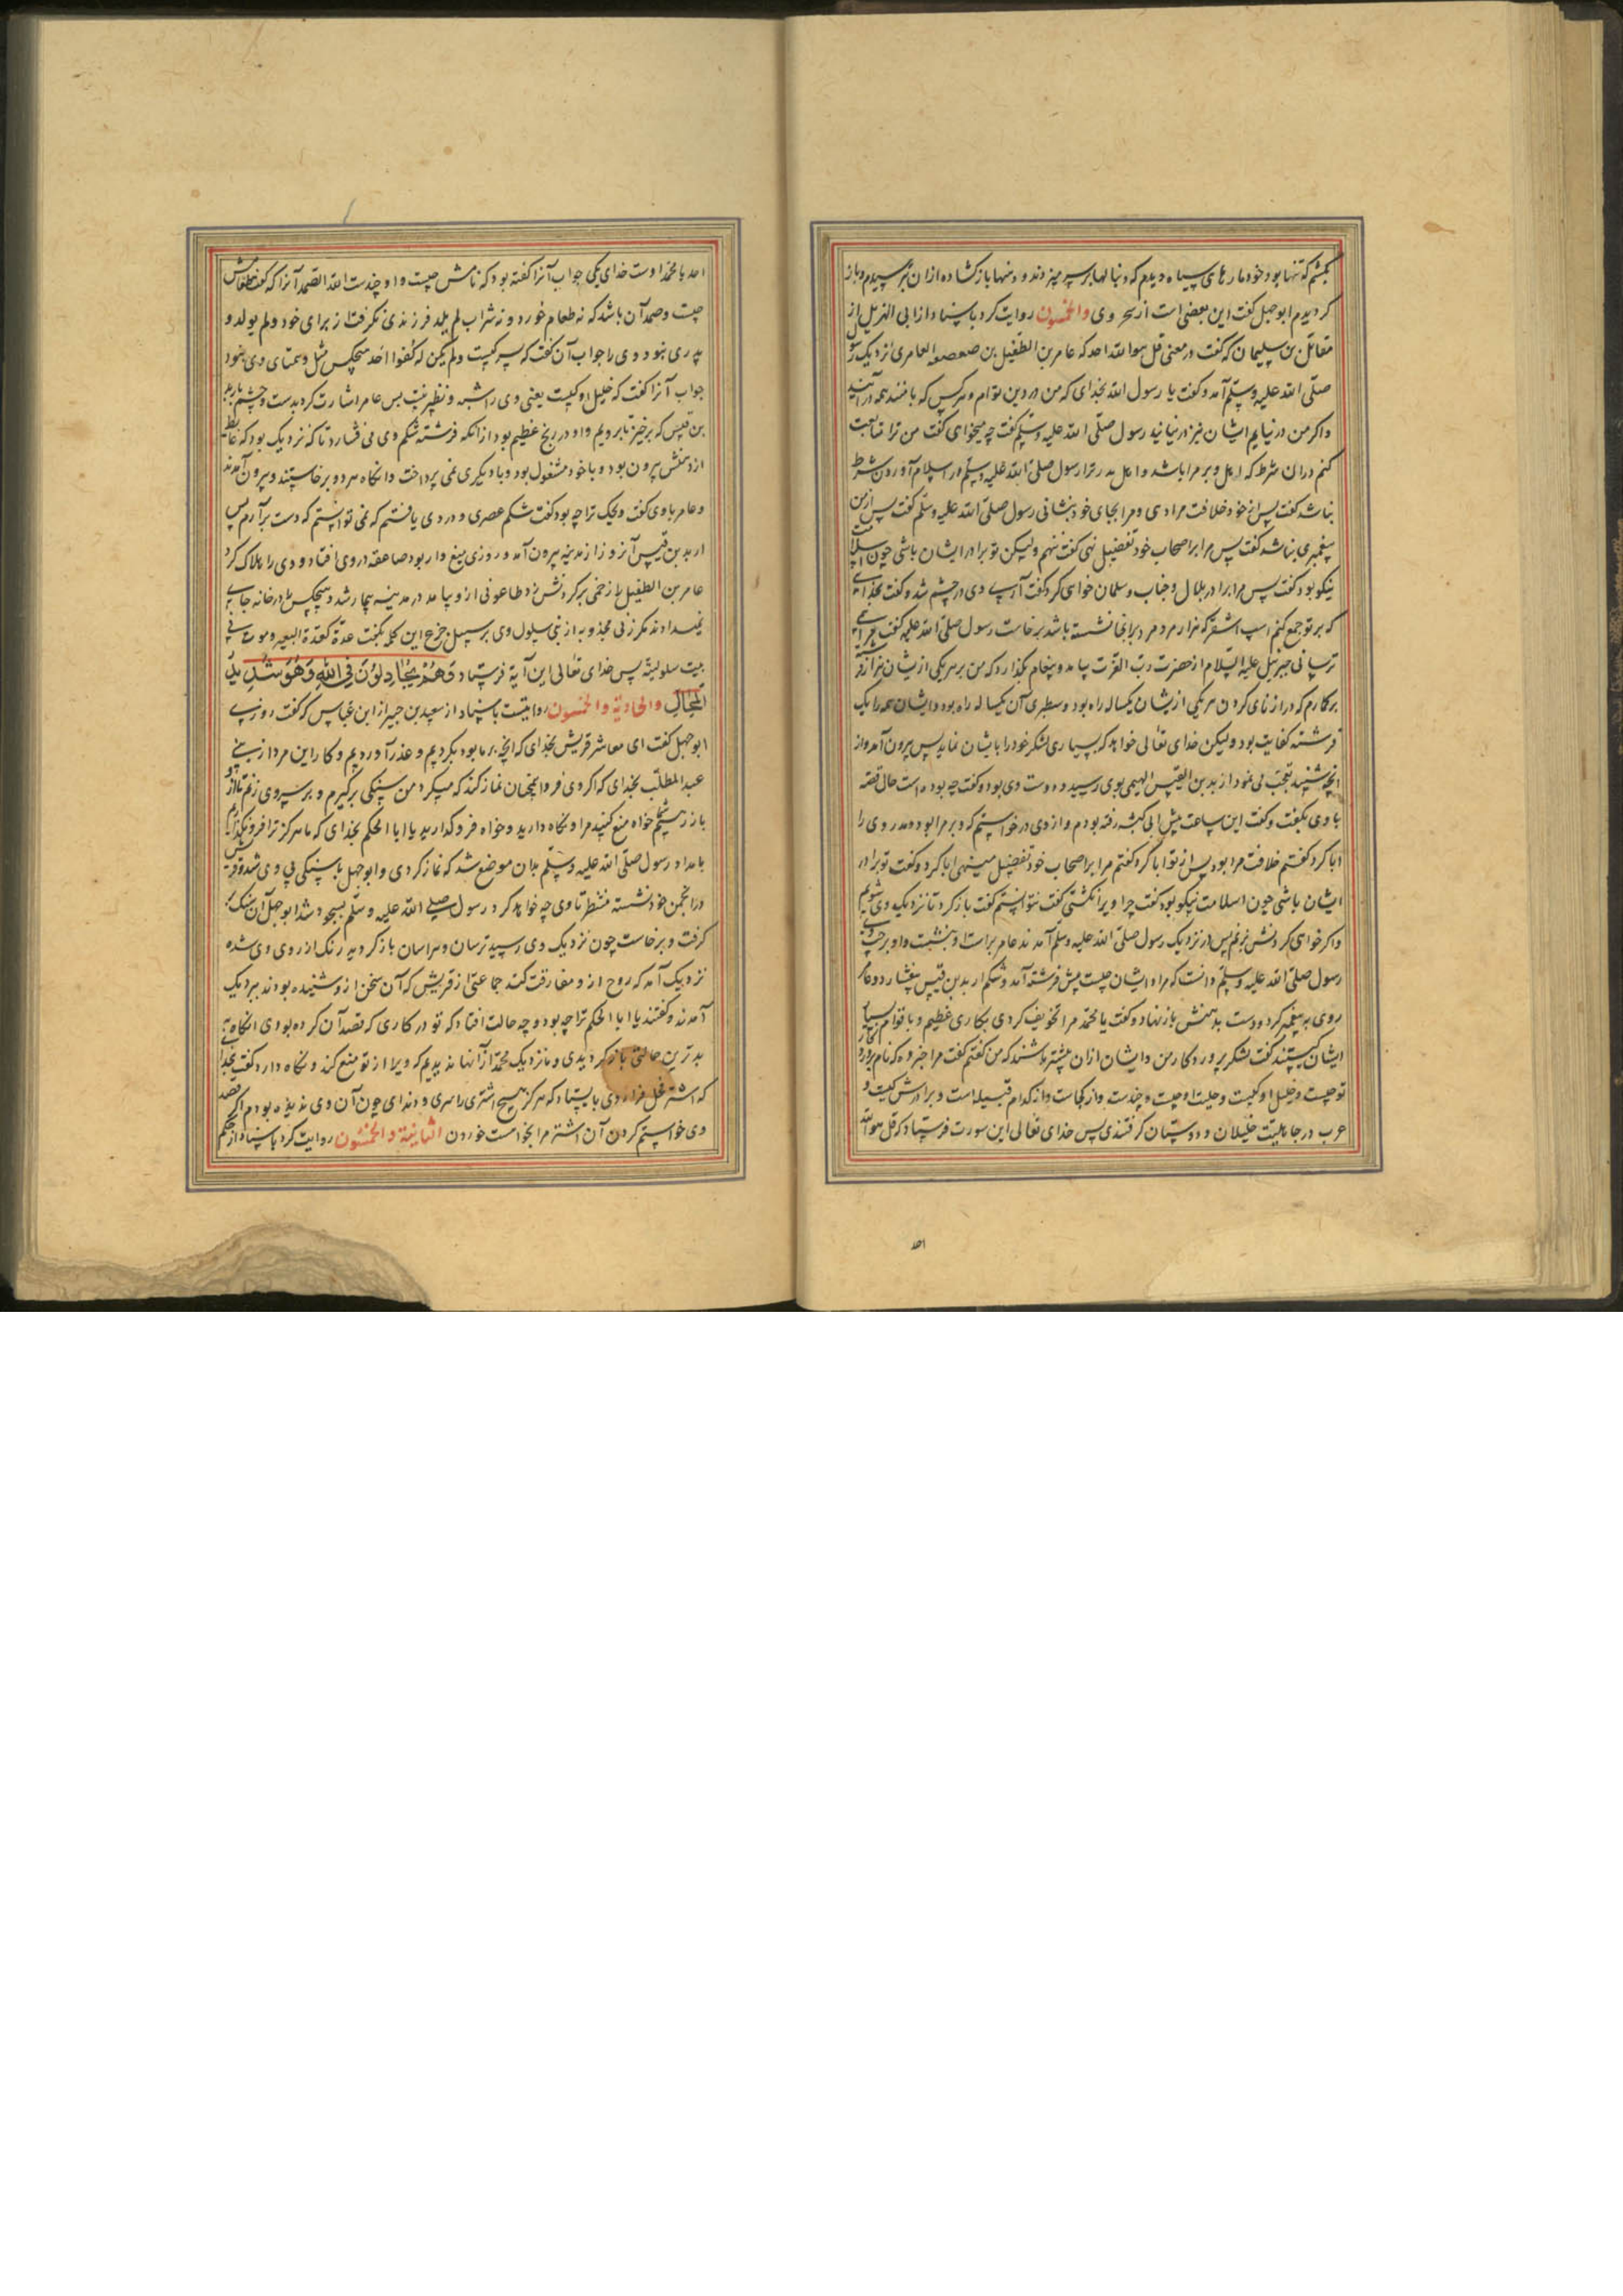 بکشم که تنها بود خود مارهای سیاه دیدم که دنبالها بر سر میزدند و دهنها باز کشاده ازان بترسیدم و باز
کردیدم ابوجهل کفت این بعضی است از سحر وی والخمسون روایت کرد باسناد از ابی الهذیل از
مقاتل بن سلیمان که کفت در معنی قل هو الله احد که عامر بن الطفیل بن صعصعه العامری نزدیک رسول
صلّی الله علیه وسلّم آمد و کفت یا رسول الله بخدای که من در دین توام و هرکس که با منند همه در آیند
و اکر من در نیایم ایشان نیز در نیایند رسول صلّی الله علیه وسلّم کفت چه میخوای کفت من ترا متابعت
کنم دران شرط که اهل وبر مرا باشد و اهل مدر ترا رسول صلّی الله علیه وسلّم کفت در اسلام آوردن شرط
نباشد کفت پس از خود خلافت مرا دی و مرا بجای خود بنشانی رسول صلّی الله علیه وسلّم کفت پس از من
پیغمبری نباشد کفت پس مرا بر اصحاب خود تفضیل نهی کفت ننهم ولیکن تو برادر ایشان باشی چون اسلامت
نیکو بود کفت پس مرا برادر بلال و خباب و سلمان خواهی کرد کفت آری وی در خشم شد و کفت بخدای
که بر تو جمع کنم اسپ اشقر که هزار مرد مرد بر انجا نشسته باشد برخاست رسول صلّی الله علیه کفت مرا می
ترسانی جبرئیل علیه السّلام از حضرت ربّ العزت بیامد و پیغام بکذارد که من بر هر یکی ازیشان هزار فرشته
برکارم که درازنای کردن هر یکی ازیشان یکساله راه بود و سطبری آن یکساله راه بود و ایشان همه را یک
فرشته کفایت بود ولیکن خدای تعالی خواهد که بسیاری لشکر خود را بایشان نماید پس بیرون آمد و از
انچه شنید تعجّب می نمود اربد بن القیس السهمی بوی رسید و دوست وی بود و کفت چه بوده است حال قصّه
با وی بکفت و کفت این ساعت پیش ابی کبشه رفته بودم و از وی درخواستم که وبر مرا بود و مدر وی را
ابا کرد کفتم خلافت مرا بود پس از تو ابا کرد کفتم مرا بر اصحاب خود تفضیل مینهی ابا کرد و کفت تو برادر
ایشان باشی چون اسلامت نیکو بود کفت چرا ویرا نکشتی کفت نتوانستم کفت باز کرد تا نزدیک وی شویم
و اکر خواهی کردنش بزنم پس در نزدیک رسول صلّی الله علیه وسلّم آمدند عامر براست او بنشست و اربد بر چپ وی
رسول صلّی الله علیه وسلّم دانست که مراد ایشان چیست پیش فرشته آمد و شکم اربد بن قیس بیفشارد و عامر
روی به پیغمبر کرد و دست بدهنش باز نهاد و کفت یا محمّد مرا تخویف کردی بکاری عظیم و با قوام بسیار
ایشان کیستند کفت لشکر پروردکار من و ایشان ازان بیشتر باشند که من کفتم کفت مرا خبر ده که نام پروردکار
تو چیست و خلیل او کیست و حلیت او چیست و چندست و از کجاست و از کدام قبیله است و برادرش کیست و
عرب در جاهلیت خلیلان و دوستان کرفتندی پس خدای تعالی این سورت فرستاد که قل هو الله
احد
احد یا محمّد اوست خدای یکی جواب آنرا کفته بود که نامش چیست و او چندست الله الصّمد آنرا که کفت طعامش
چیست و صمد آن باشد که نه طعام خورد و نه شراب لم یلد فرزندی نکرفت از برای خود ولم یولد و
پدری نبود وی را جواب آن کفت که پسر کیست ولم یکن له کفوا احد هیچکس مثل و همتای وی نبود
جواب آنرا کفت که خلیل او کیست یعنی وی را شبه و نظیر نیست پس عامر اشارت کرد بدست و چشم باربد
بن قیس که برخیز تا برویم و او در رنج عظیم بود از انکه فرشته شکم وی می فشارد تا که نزدیک بود که غایط
از دهنش بیرون بود و با خود مشغول بود و با دیکری نمی پرداخت و انکاه هر دو برخاستند و بیرون آمدند
و عامر با وی کفت ویحک ترا چه بود کفت شکم عصری و دردی یافتم که نمی توانستم که دست برآرم پس
اربد بن قیس آنروز از مدینه بیرون آمد و روزی میغ وار بود صاعقه در وی افتاد و وی را هلاک کرد
عامر بن الطفیل را زخمی بر کردنش زد طاعونی ازو بیامد در مدینه بیمار شد و هیچکس در خانه جای
نمیدادند مکر زنی مجذوبه از بنی سلول وی بر سبیل جزع این کلمه بکفت غدّة کغدّة البعیر و موت فی
بیت سلولیّة پس خدای تعالی این آیة فرستاد وَهُمْ یُجَادِلُوْنَ فِی اللهِ وَهُوَ شَدِیدُ
الْمِحَالِ والحادیة والخمسون روایتست باسناد از سعید بن جبیر از ابن عبّاس که کفت روزی
ابوجهل کفت ای معاشر قریش بخدای که انچه بر ما بود بکردیم و عذر آوردیم و کار این مرد از بنی
عبدالمطلّب بخدای که اکر وی فردا همچنان نماز کند که میکرد من سنکی برکیرم و بر سر وی زنم تا ازو
باز رستیم خواه منع کنید مرا و نکاه دارید و خواه فرو کدارید یا ابا الحکم بخدای که ما هرکز ترا فرو نکذاریم
بامداد رسول صلّی الله علیه وسلّم بدان موضع شد که نماز کردی و ابوجهل با سنکی پی وی شد و قریش
در انجمن خود نشسته منتظر تا وی چه خواهد کرد رسول صلّی الله علیه وسلّم بسجود شد ابوجهل آن سنک بر
کرفت و برخاست چون نزدیک وی رسید ترسان و هراسان باز کردید رنک از روی وی شده
نزدیک آمد که روح ازو مفارقت کند جماعتی از قریش که آن سخن ازو شنیده بودند بنزدیک
آمدند و کفتند یا ابا الحکم ترا چه بود و چه حالت افتاد که تو در کاری که قصد آن کرده بودی انکاه به
بدترین حالتی باز کردیدی و ما نزدیک محمّد از آنها ندیدیم که ویرا از تو منع کند و نکاه دارد کفت بخدا
که اشتر فحل فرا روی بایستاد که هرکز هیچ اشتری را سری و دندای چون آن وی ندیده بودم اکر قصد
وی خواستم کردن آن اشتر مرا بخواست خوردن الثانیة والخمسون روایت کرد باسناد از جهم